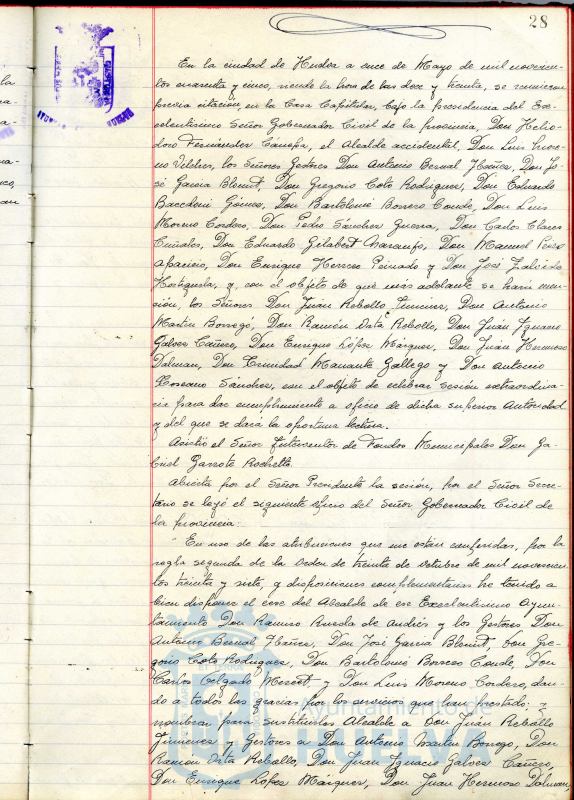 28
En la ciudad de Huelva a once de Mayo de mil novecien-
tos cuarenta y cinco, siendo la hora de las doce y treinta, se reunieron
previa citación en la Casa Capitular, bajo la presidencia del Exce-
lentísimo Señor Gobernador Civil de la provincia, Don Helio-
doro Fernández Cánepa, el Alcalde accidental, Don Luis
Vélchez, los Señores Gestores Don Antonio Bernal Ibáñez, Don Jo-
sé García Blomut, Don Gregorio Coto Rodríguez, Don Eduardo
Gómez, Don Bartolomé Borrero Conde, Don Luis
Moreno Cordero, Don Pedro Sánchez Guerra, Don Carlos
Don Eduardo Gilabert Naranjo, Don Manuel
Aparicio, Don Enrique Herrero Peinado y Don José
y, con el objeto de que más adelante se hará men-
sión, los Señores Don Juan Rebollo Jiménez, Don Antonio
Martín Borrego, Don Ramón Orta Rebollo, Don Juan Ignacio
Galvez Cañero, Don Enrique López Márquez, Don Juan Hermoso
Dalman, Don Trinidad Gallego y Don Antonio
Toscano Sánchez, con el objeto de celebrar sesión extraordina-
ria para dar cumplimiento a oficio de dicha superior Autoridad
y del que se dará la oportuna lectura.
Asistió el Señor Interventor de Fondos Municipales Don Ga-
briel Garrote Rochelta.
Abierta por el Señor Presidente la sesión, por el Señor Secre-
tario se leyó el siguiente oficio del Señor Gobernador Civil de
la provincia:
"En uso de las atribuciones que me están conferidas, por la
regla segunda de la Orden de treinta de octubre de mil novecien-
tos treinta y siete, y disposiciones complementarias he tenido a
bien disponer el cese del Alcalde de ese Excelentísimo Ayun-
tamiento Don Ramiro Rueda de Andrés y los Gestores Don
Antonio Bernal Ibáñez, Don José García Blomut, Don Gre-
gorio Coto Rodríguez, Don Bartolomé Borrero Conde, Don
Carlos Delgado y Don Luis Moreno Cordero, dan-
do a todos las gracias por los servicios que han prestado; y
nombrar para sustituirlos Alcalde a Don Juan Rebollo
Jiménez y Gestores a Don Antonio Martín Borrego, Don
Ramón Orta Rebollo, Don Juan Ignacio Galvez Cañero,
Don Enrique López Márquez, Don Juan Hermoso Dalman,
Ayuntamiento de
HUELVA